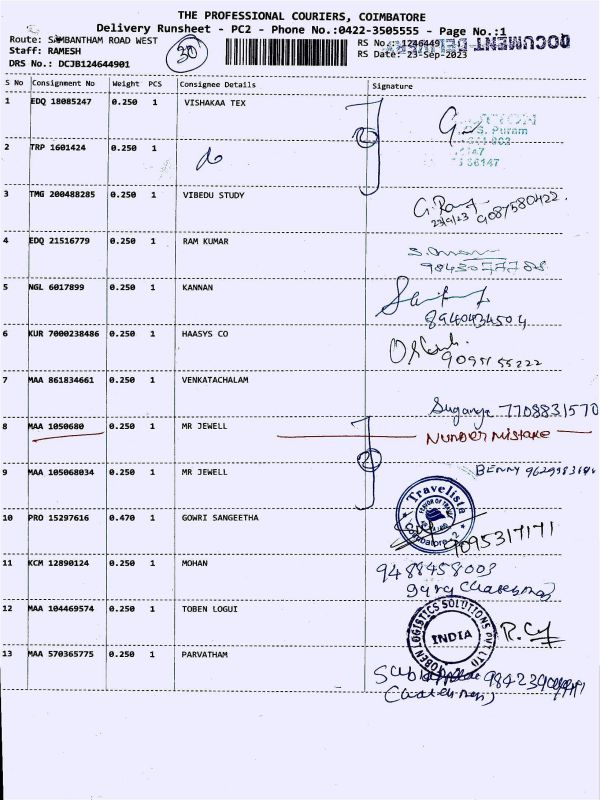 THE PROFESSIONAL COURIERS, COIMBATORE
Delivery Runsheet - PC2 - Phone No.:0422-3505555 - Page No.:1
Route: SAMBANTHAM ROAD WEST
Staff: RAMESH
DRS No.: DCJB124644901
30
RS No.: 1246449
RS Date: 23-Sep-2023
DOCUMENT DELIVERY
S No Consignment No Weight PCS Consignee Details Signature
1 EDQ 18085247 0.250 1 VISHAKAA TEX
S. Puram
2 TRP 1601424 0.250 1
66147
3 TMG 200488285 0.250 1 VIBEDU STUDY
23/9/23 9087580422.
4 EDQ 21516779 0.250 1 RAM KUMAR
5 NGL 6017899 0.250 1 KANNAN
8940434504
6 KUR 7000238486 0.250 1 HAASYS CO
9095155222
7 MAA 861834661 0.250 1 VENKATACHALAM
Suganya 7708831570
8 MAA 1050680 0.250 1 MR JEWELL
NUMBER MISTAKE
9 MAA 105068034 0.250 1 MR JEWELL
BENNY
Travelista
Coimbatore-2
10 PRO 15297616 0.470 1 GOWRI SANGEETHA
7095317171
11 KCM 12890124 0.250 1 MOHAN
9488458003
12 MAA 104469574 0.250 1 TOBEN LOGUI
TOBEN LOGISTICS SOLUTIONS PVT. LTD
INDIA
13 MAA 570365775 0.250 1 PARVATHAM